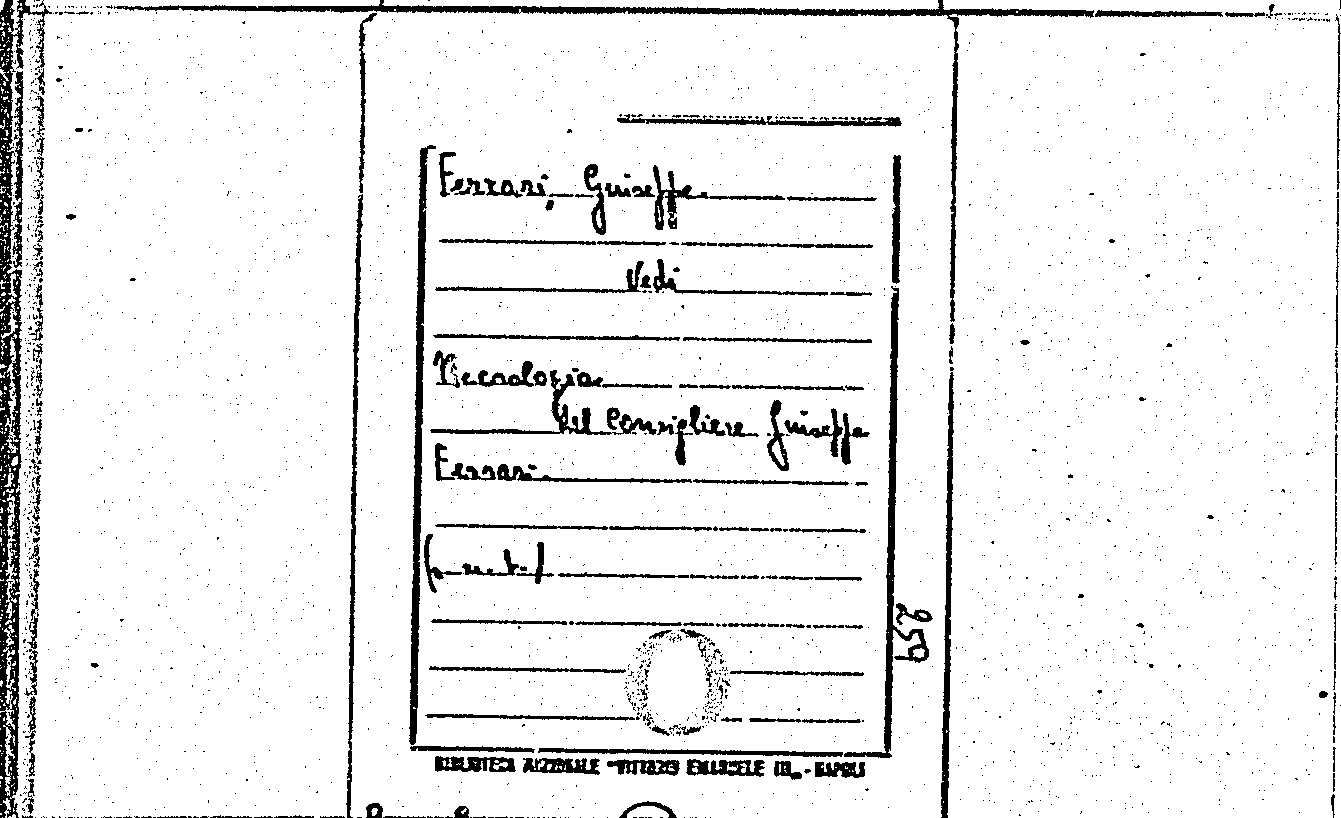 Ferrari, Giuseppe.
Vedi
Necrologia
del Consigliere Giuseppe
Ferrari.
259
BIBLIOTECA NAZIONALE "VITTORIO EMANUELE III" - NAPOLI